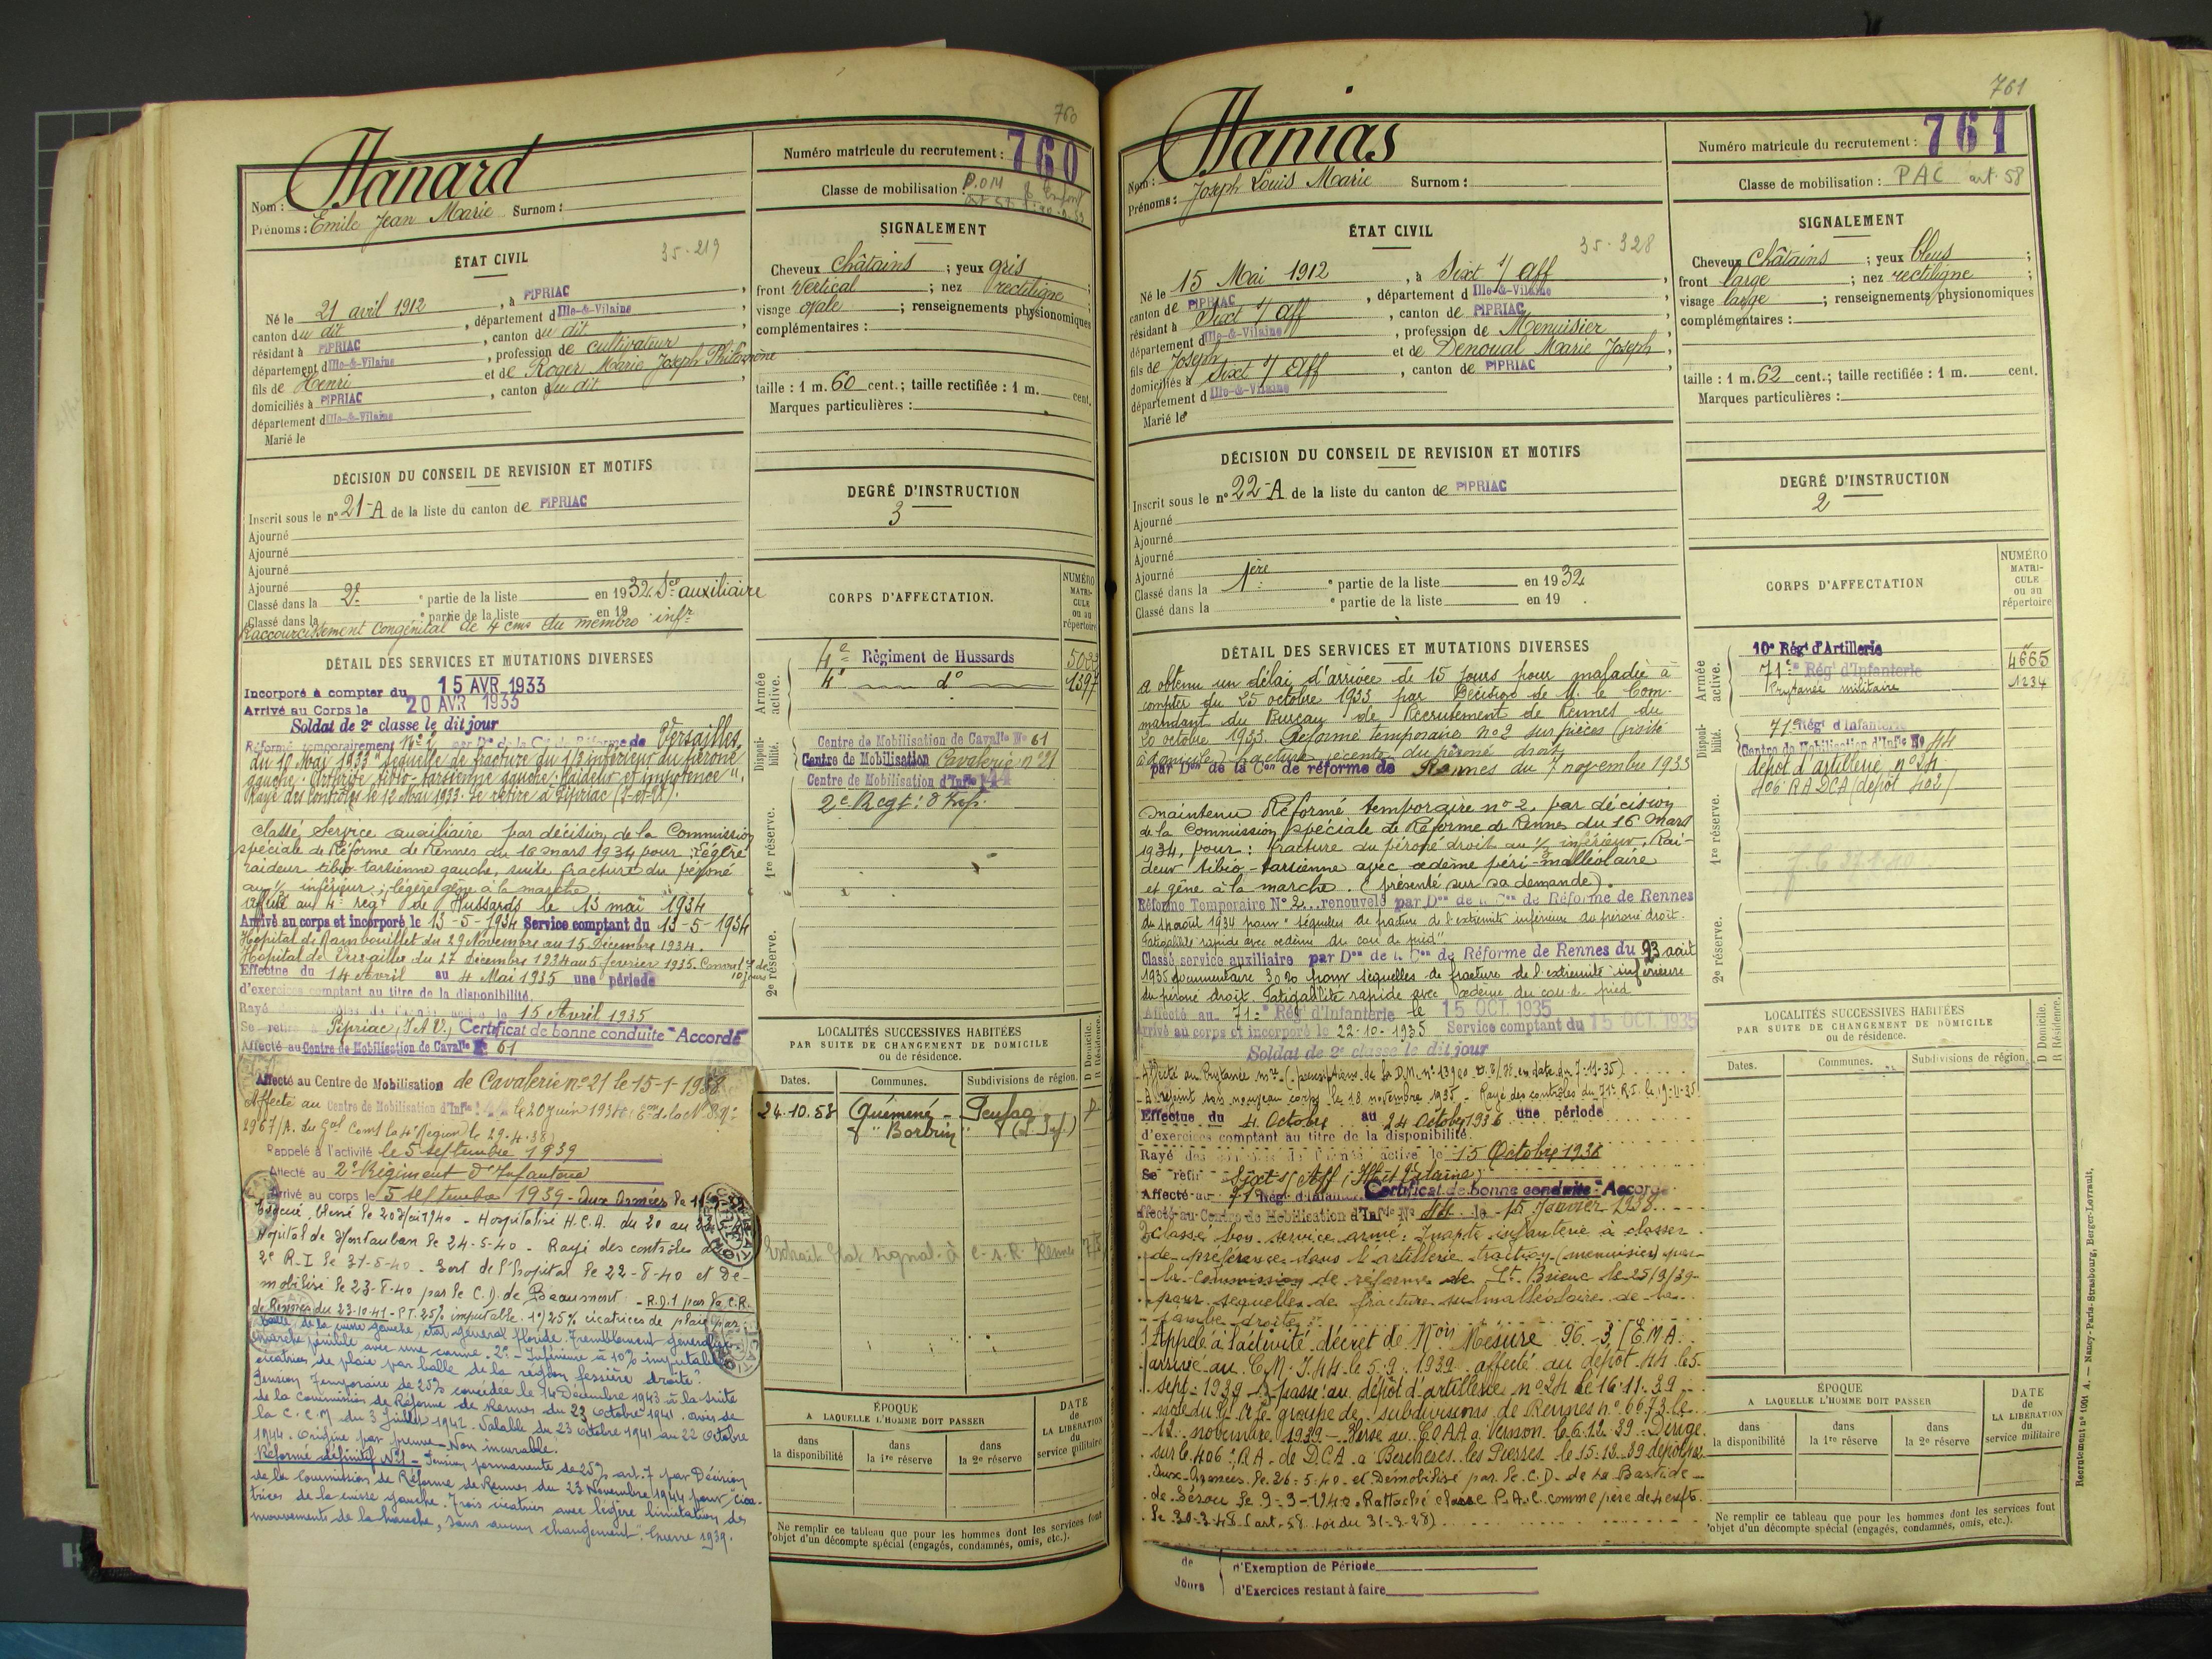 760
Hanard
Nom :
Prénoms : Emile Jean Marie Surnom :
Numéro matricule du recrutement : 760
Classe de mobilisation :
ÉTAT CIVIL
35-219
Né le 21 avril 1912, à PIPRIAC
canton du dit, département d Ille-&-Vilaine
résidant à PIPRIAC, canton du dit
département d Ille-&-Vilaine, profession de cultivateur
fils de Henri et de Roger Marie Joseph Philomène
domiciliés à PIPRIAC, canton du dit
département d Ille-&-Vilaine
Marié le
SIGNALEMENT
Cheveux châtains ; yeux gris ;
front vertical ; nez rectiligne ;
visage ovale ; renseignements physionomiques
complémentaires :
taille : 1 m. 60 cent. ; taille rectifiée : 1 m. cent.
Marques particulières :
DÉCISION DU CONSEIL DE REVISION ET MOTIFS
Inscrit sous le n° 21-A de la liste du canton de PIPRIAC
Ajourné
Ajourné
Ajourné
Ajourné
Classé dans la 2e ° partie de la liste en 1932. Sce auxiliaire
Classé dans la ° partie de la liste en 19
Raccourcissement congénital de 4 cms du membre infr
DEGRÉ D'INSTRUCTION
3
DÉTAIL DES SERVICES ET MUTATIONS DIVERSES
Incorporé à compter du 15 AVR 1933
Arrivé au Corps le 20 AVR 1933
Soldat de 2e classe le dit jour
Réformé temporairement N° 2 par Don de la Con de Réforme de Versailles
du 10 Mai 1933 "Séquelle de fracture du 1/3 inférieur du péroné
gauche. Arthrite tibio-tarsienne gauche. Raideur et impotence".
Rayé des contrôles le 12 Mai 1933. Se retire à Pipriac (I-et-V).
Classé Service auxiliaire par décision de la Commission
spéciale de Réforme de Rennes du 16 mars 1934 pour : légère
raideur tibio-tarsienne gauche, suite fracture du péroné
au 1/3 inférieur ; légère gêne à la marche.
affecté au 4e regt de Hussards le 13 mai 1934
Arrivé au corps et incorporé le 13-5-1934 Service comptant du 13-5-1934
Hôpital de Rambouillet du 29 Novembre au 15 Décembre 1934.
Hopital de Versailles du 27 Décembre 1934 au 5 fevrier 1935.
Effectue du 14 Avril au 4 Mai 1935 une période
d'exercices comptant au titre de la disponibilité.
Rayé le 15 Avril 1935
Se retire à Pipriac, (I.&V), Certificat de bonne conduite "Accordé"
Affecté au Centre de Mobilisation de Cavalie N° 61
Affecté au Centre de Mobilisation de Cavalerie n° 21 le 15-1-1938
Affecté au Centre de Mobilisation d'Infie 44 le 20 juin 1938
2967/A. du Gal Comt la 4e Region le 29.4.38
Rappelé à l'activité le 5 septembre 1939
Affecté au 2e Régiment d'Infanterie
Arrivé au corps le 5 septembre 1939 - Aux Armées le
Evacué blessé le 20 1940 - Hospitalisé H.C.A. du 20 au
Hôpital de Montauban le 24-5-40 - Rayé des contrôles du
2e R-I le 31-5-40 - Sort de l'hopital le 22-8-40 et Dé-
mobilisé le 23-8-40 par le C.D. de Beaumont - R.D.1 par la C.R.
de Rennes du 23-10-41 - P.T. 25% imputable. 1°) 25% cicatrices de plaie par
balle, de la cuisse gauche, état général floride. Tremblement généralisé
marche pénible avec une canne. 2° - Inférieure à 10% imputable
cicatrices de plaie par balle de la région fessière droite.
Pension temporaire de 25% concédée le 14 Décembre 1943 à la suite
de la Commission de Réforme de Rennes du 23 octobre 1941. avis de
la C.C.M. du 3 Juillet 1942. Valable du 23 octobre 1941 au 22 octobre
1944. Origine par preuve - Non incurable.
Réformé définitif N°1 - Pension permanente de 25% art. 7 par Décision
de la Commission de Réforme de Rennes du 23 Novembre 1944 pour "cica-
trices de la cuisse gauche. Trois cicatrices avec légère limitation des
mouvements de la hanche, sans aucun changement". Guerre 1939.
CORPS D'AFFECTATION.
NUMÉRO MATRICULE ou au répertoire
Armée active.
4e Régiment de Hussards
4e d° 1397
Disponibilité.
Centre de Mobilisation de Cavalie N° 61
Centre de Mobilisation Cavalerie n° 21
Centre de Mobilisation d'Infie 44
1re réserve.
2e Regt d'Inf.
2e réserve.
LOCALITÉS SUCCESSIVES HABITÉES
PAR SUITE DE CHANGEMENT DE DOMICILE
ou de résidence.
D Domicile. R Résidence.
Dates. Communes. Subdivisions de région.
24.10.53 Guémené - Penfao
Extrait Etat signal. à C.S.R. Rennes
ÉPOQUE
A LAQUELLE L'HOMME DOIT PASSER
dans la disponibilité
dans la 1re réserve
dans la 2e réserve
DATE de LA LIBÉRATION du service militaire
Ne remplir ce tableau que pour les hommes dont les services font
l'objet d'un décompte spécial (engagés, condamnés, omis, etc.).
761
Hanias
Nom :
Prénoms : Joseph Louis Marie Surnom :
Numéro matricule du recrutement : 761
Classe de mobilisation : PAC art. 58
ÉTAT CIVIL
35-328
Né le 15 Mai 1912, à Sixt s/ Aff
canton de PIPRIAC, département d Ille-&-Vilaine
résidant à Sixt s/ Aff, canton de PIPRIAC
département d Ille-&-Vilaine, profession de Menuisier
fils de Joseph et de Denoual Marie Joseph
domiciliés à Sixt s/ Aff, canton de PIPRIAC
département d Ille-&-Vilaine
Marié le
SIGNALEMENT
Cheveux châtains ; yeux bleus ;
front large ; nez rectiligne ;
visage large ; renseignements physionomiques
complémentaires :
taille : 1 m. 62 cent. ; taille rectifiée : 1 m. cent.
Marques particulières :
DÉCISION DU CONSEIL DE REVISION ET MOTIFS
Inscrit sous le n° 22-A de la liste du canton de PIPRIAC
Ajourné
Ajourné
Ajourné
Ajourné
Classé dans la 1ère ° partie de la liste en 1932.
Classé dans la ° partie de la liste en 19 .
DEGRÉ D'INSTRUCTION
2
DÉTAIL DES SERVICES ET MUTATIONS DIVERSES
A obtenu un délai d'arrivée de 15 jours pour maladie à
compter du 25 octobre 1933 par Décision de M. le Com-
mandant du Bureau de Recrutement de Rennes du
20 octobre 1933. Réformé temporaire n° 2 sur pièces (visité
à domicile) fracture récente du péroné droit
par Don de la Con de réforme de Rennes du 7 novembre 1933
Maintenu Réformé temporaire n° 2, par décision
de la Commission spéciale de Réforme de Rennes du 16 Mars
1934, pour : fracture du péroné droit au 1/3 inférieur, Rai-
deur tibio-tarsienne avec œdème péri-malléolaire
et gêne à la marche. (présenté sur sa demande).
Réforme Temporaire N° 2 renouvelé par Don de la Con de Réforme de Rennes
du août 1934 pour "séquelles de fracture de l'extrémité inférieure du péroné droit.
Fatigabilité rapide avec œdème du cou de pied"
Classé service auxiliaire par Don de la Con de Réforme de Rennes du 23 août
1935 documentaire 30% pour séquelles de fracture de l'extrémité inférieure
du péroné droit. Fatigabilité rapide avec œdème du cou-de-pied
Affecté au 71e Régt d'Infanterie le 15 OCT. 1935
Arrivé au corps et incorporé le 22-10-1935 Service comptant du 15 OCT. 1935
Soldat de 2e classe le dit jour
Affecté au Prytanée mre (prescriptions de la D.M. n° en date du 7-11-35)
A rejoint son nouveau corps le 18 novembre 1935 - Rayé des contrôles du 71e R.I. le 19-11-35
Effectue du 4 Octobre au 24 Octobre 1936 une période
d'exercices comptant au titre de la disponibilité.
Rayé des contrôles de l'armée active le 15 Octobre 1936
Se retire Sixt-s/Aff (Ille et Vilaine)
Affecté au 71 Régt d'Infanterie Certificat de bonne conduite "Accordé"
Affecté au Centre de Mobilisation d'Infie N° 44 le 15 Janvier 1938
Classé bon service armé : Inapte infanterie à classer
de préférence dans l'artillerie traction (menuisier) par
la Commission de réforme de St Brieuc le 25/3/39
pour sequelles de fracture susmalléolaire de la
jambe droite.
Appelé à l'activité décret de Mon Mesure 96-3/E.M.A.
arrivé au C.M.I. 44 le 5.9.1939 affecté au dépôt 44 le 5
sept. 1939 - passe au dépôt d'artillerie n° 24 le 16.11.39
note du Gal groupe de subdivisions de Rennes n° 6673 le
12 novembre 1939 - Versé au C.O.A.A à Vernon le 6.12.39 - Dirigé
sur le 406e R.A. de D.C.A. à Berchères les Pierres le 15-12-39
Aux Armées le 26-5-40 et Démobilisé par le C.D. de La Bastide
de Sérou le 9-9-1940. Rattaché classe P.A.C. comme père de 4 enfts
le 30-3-48 (art. 58 Loi du 31-3-28)
de
Jours
d'Exemption de Période
d'Exercices restant à faire
CORPS D'AFFECTATION
NUMÉRO MATRICULE ou au répertoire
Armée active.
10e Régt d'Artillerie
71e Régt d'Infanterie 4665
Prytanée militaire 1234
Disponibilité.
71e Régt d'Infanterie
Centre de Mobilisation d'Infie N° 44
1re réserve.
dépôt d'artillerie n° 24
406 RADCA (dépôt 402)
2e réserve.
LOCALITÉS SUCCESSIVES HABITÉES
PAR SUITE DE CHANGEMENT DE DOMICILE
ou de résidence.
D Domicile. R Résidence.
Dates. Communes. Subdivisions de région.
ÉPOQUE
A LAQUELLE L'HOMME DOIT PASSER
dans la disponibilité
dans la 1re réserve
dans la 2e réserve
DATE de LA LIBÉRATION du service militaire
Ne remplir ce tableau que pour les hommes dont les services font
l'objet d'un décompte spécial (engagés, condamnés, omis, etc.).
Recrutement n° 1061 A. — Nancy-Paris-Strasbourg, Berger-Levrault.